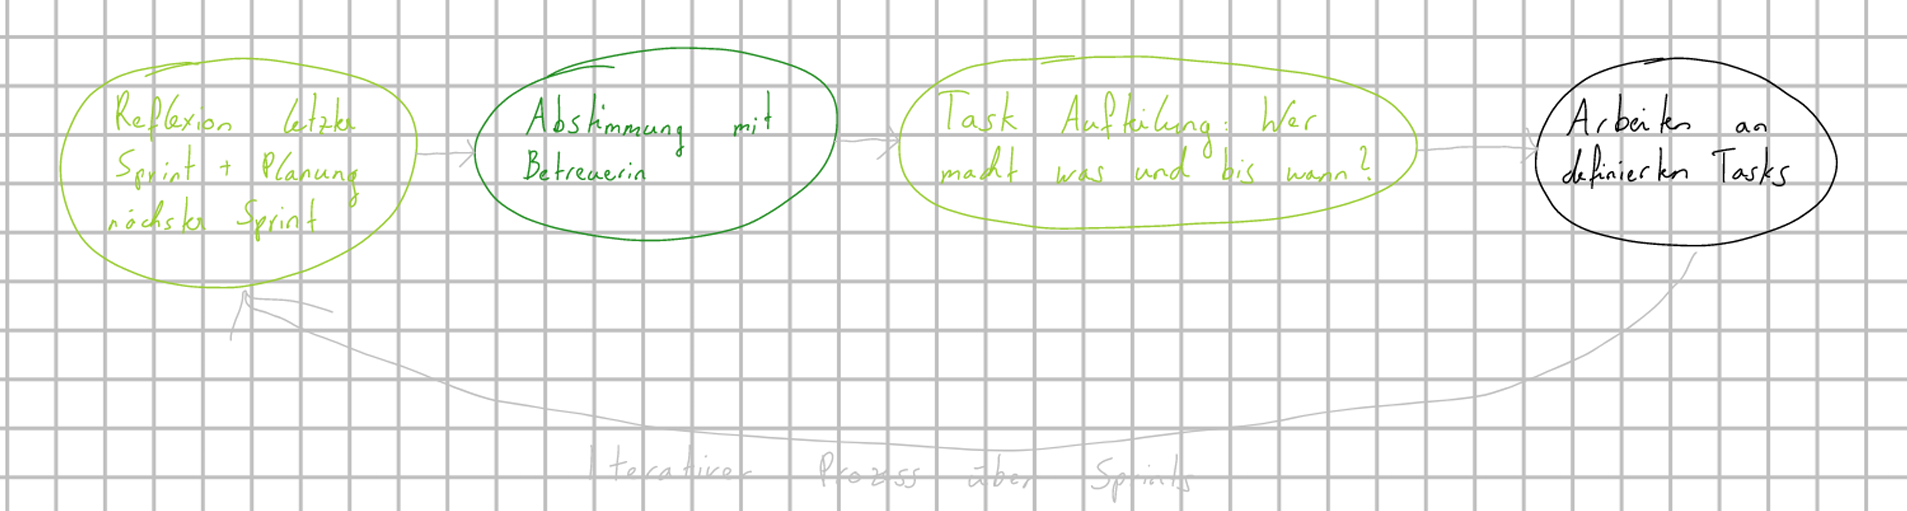 Reflexion letzter
Sprint + Planung
nächster Sprint
Abstimmung mit
Betreuerin
Task Aufteilung: Wer
macht was und bis wann?
Arbeiten an
definierten Tasks
Iterativer Prozess über Sprints